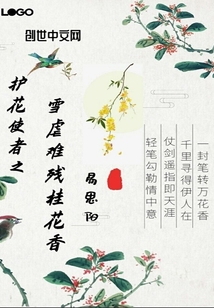 LOGO
创世中文网
护花使者之
雪虐难残桂花香
易思阳
一封笔转万花香
千里寻得伊人在
仗剑遥指即天涯
轻笔勾勒情中意